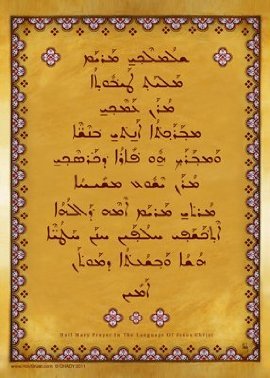 ܫܠܡܠܟܝ ܡܪܝܡ
ܡܠܝܬ ܛܝܒܘܬܐ
ܡܪܢ ܥܡܟܝ
ܡܒܪܟܬܐ ܐܢܬܝ ܒܢܫܐ
ܘܡܒܪܟ ܗܘ ܦܐܪܐ ܕܒܟܪܣܟܝ
ܡܪܢ ܝܫܘܥ ܡܫܝܚܐ
ܡܪܬܝ ܡܪܝܡ ܐܡܗ ܕܐܠܗܐ
ܐܬܟܫܦܝ ܚܠܦܝܢ ܚܢܢ ܚܛܝܐ
ܗܫܐ ܘܒܫܥܬܐ ܕܡܘܬܢ
ܐܡܝܢ
Hail Mary Prayer In The Language Of Jesus Christ
www.HolyBrush.com © GHADY 2011